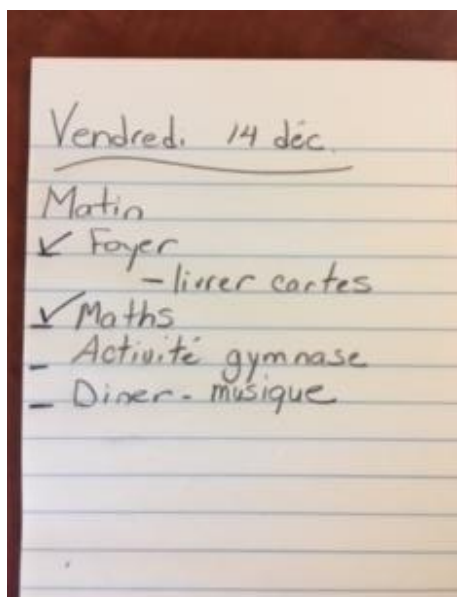 Vendredi 14 déc.
Matin
✓ Foyer
- livrer cartes
✓ Maths
- Activité gymnase
- Diner - musique